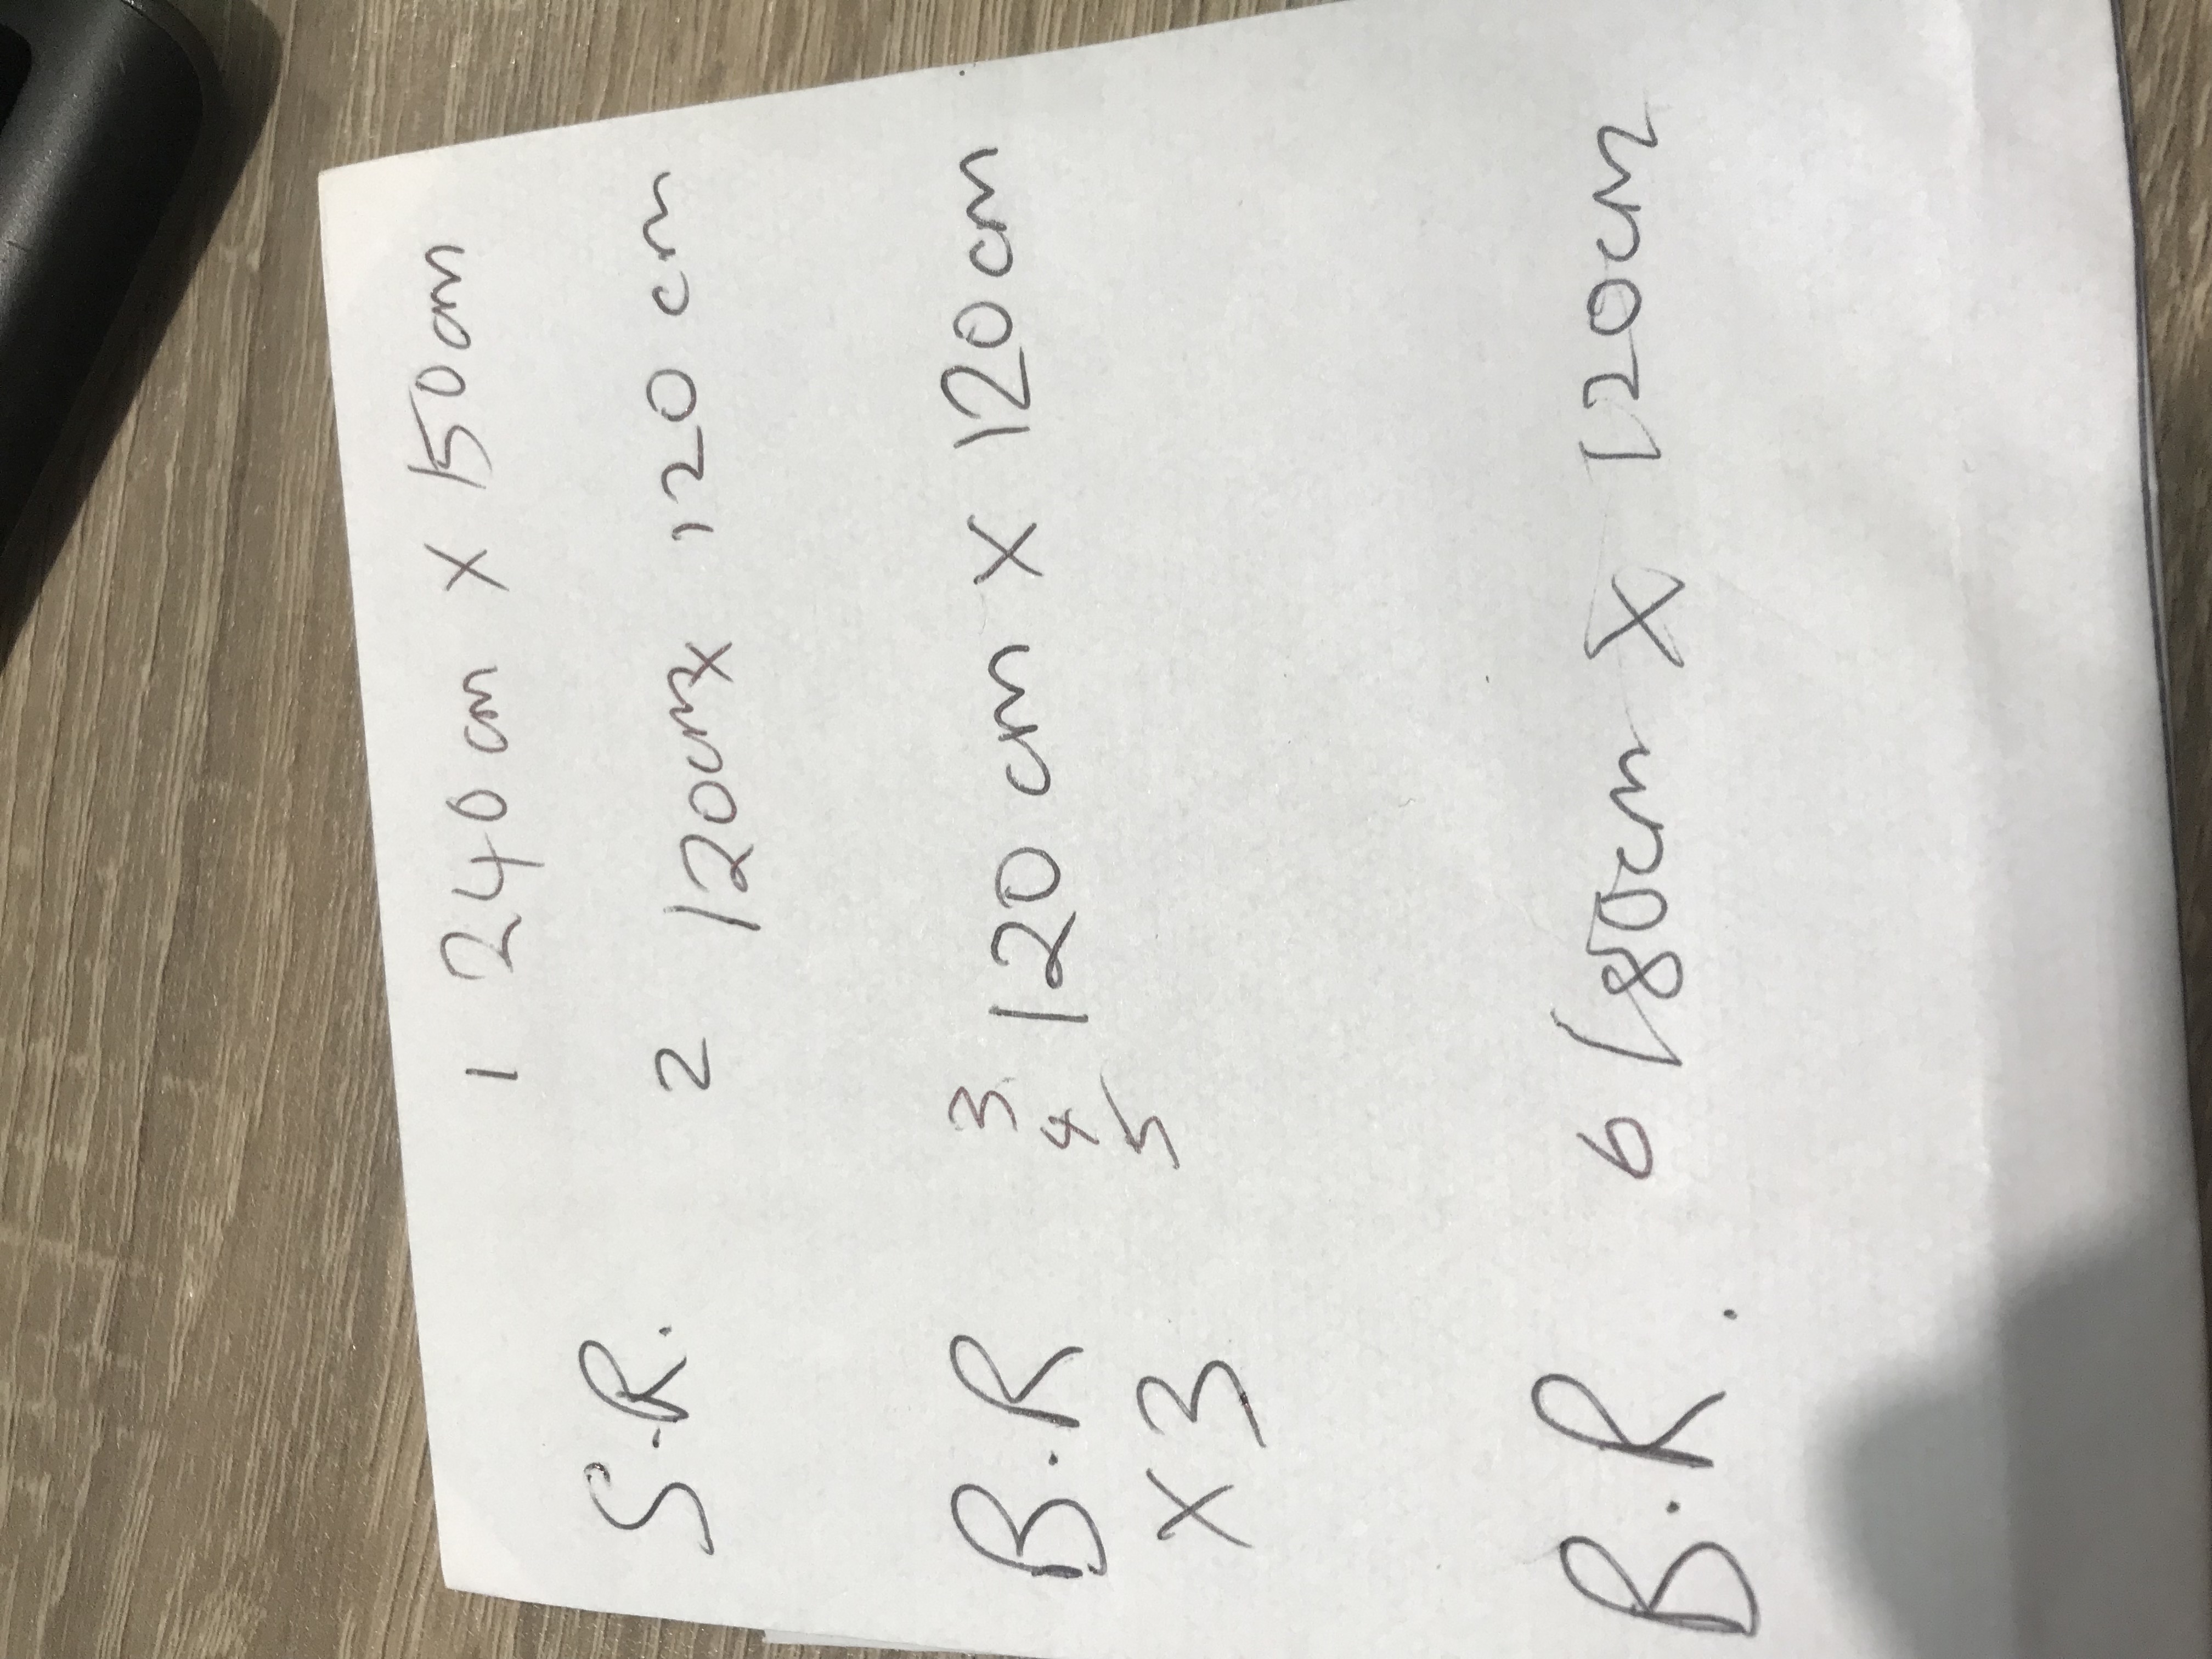 1 240cm x 150cm
S.R. 2 120cm x 120cm
B.R 3 120cm x 120cm
4
x3 5
B.R. 6 180cm x 120cm